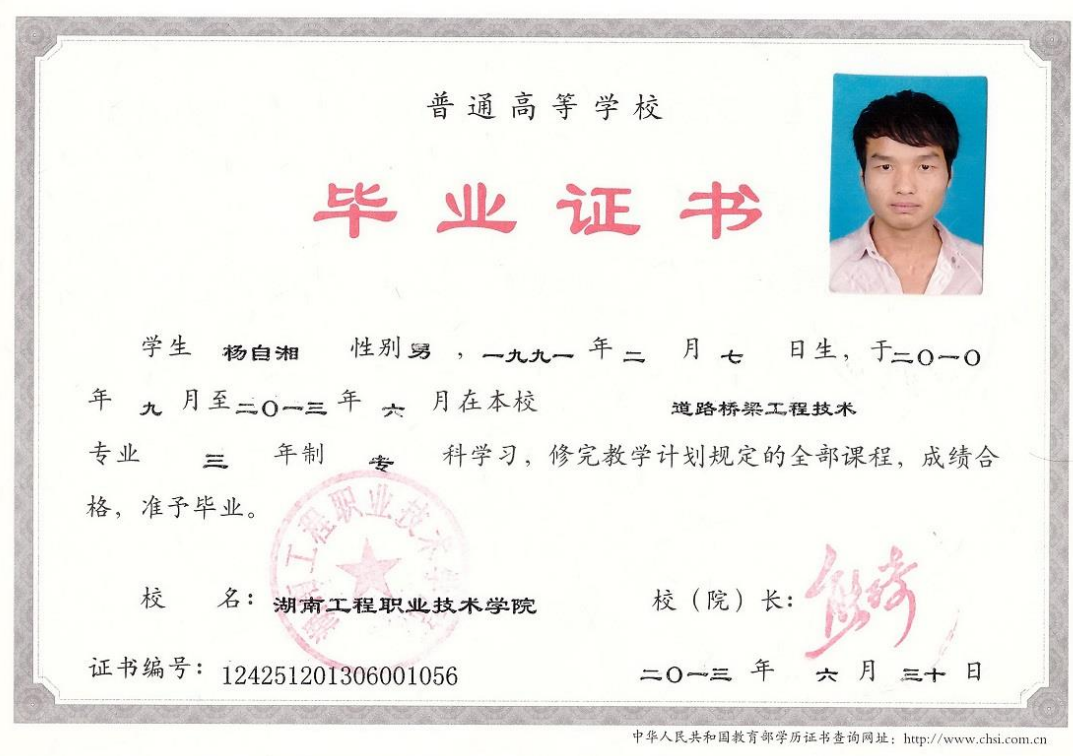 普通高等学校
毕业证书
学生 杨自湘 性别 男 ，一九九一 年 二 月 七 日生，于二〇一〇
年 九 月至二〇一三 年 六 月在本校 道路桥梁工程技术
专业 三 年制 专 科学习，修完教学计划规定的全部课程，成绩合
格，准予毕业。
湖南工程职业技术学院
校 名：湖南工程职业技术学院 校（院）长：
证书编号：124251201306001056 二〇一三 年 六 月 三十 日
中华人民共和国教育部学历证书查询网址：http://www.chsi.com.cn